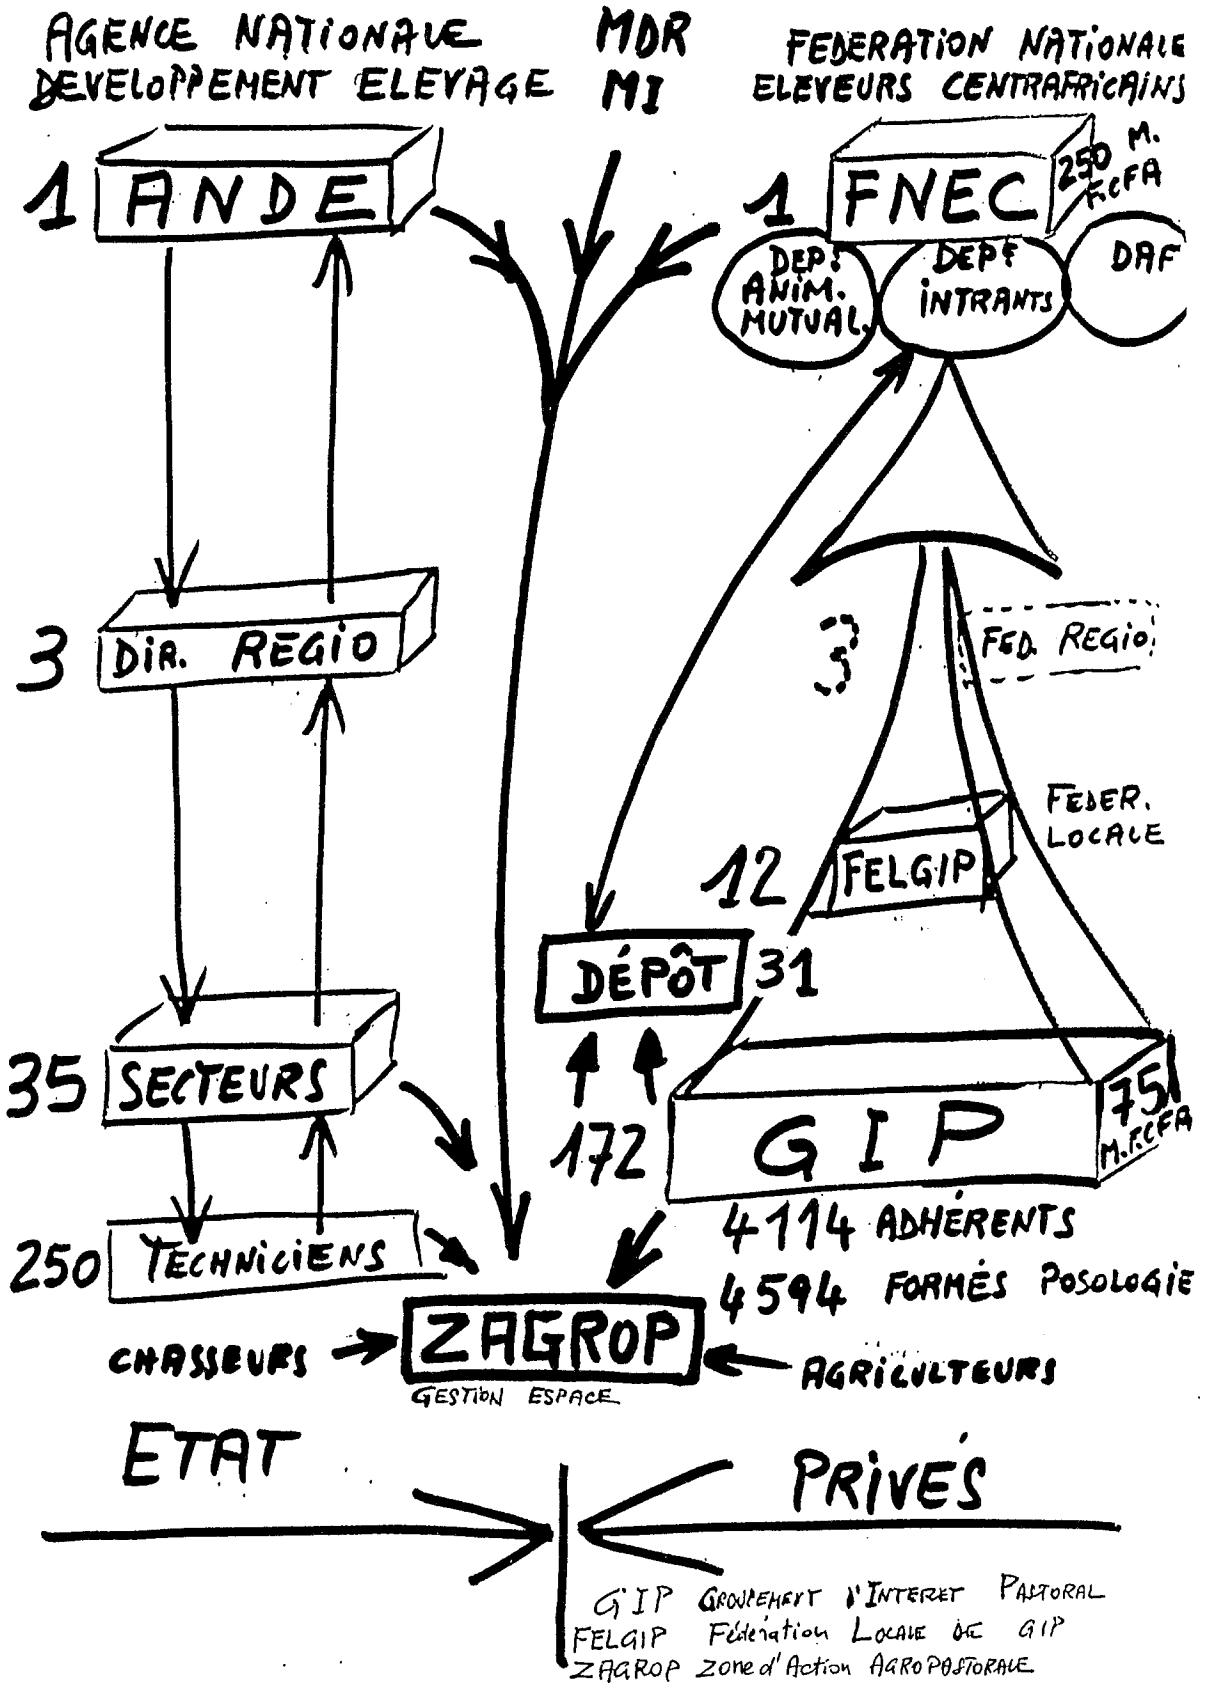 AGENCE NATIONALE
DEVELOPPEMENT ELEVAGE
MDR
MI
FEDERATION NATIONALE
ELEVEURS CENTRAFRICAINS
1 ANDE
1 FNEC
250 M.
F.CFA
DEPT
ANIM.
MUTUAL.
DEPT
INTRANTS
DAF
3 DIR. REGIO
3 FED. REGIO
FEDER.
LOCALE
12 FELGIP
DÉPÔT 31
35 SECTEURS
172
GIP
75
M.F.CFA
4114 ADHÉRENTS
250 TECHNICIENS
4594 FORMÉS POSOLOGIE
ZAGROP
CHASSEURS
AGRICULTEURS
GESTION ESPACE
ETAT
PRIVÉS
GIP GROUPEMENT d'INTERET PASTORAL
FELGIP Fédération LOCALE DE GIP
ZAGROP Zone d'Action AGROPASTORALE